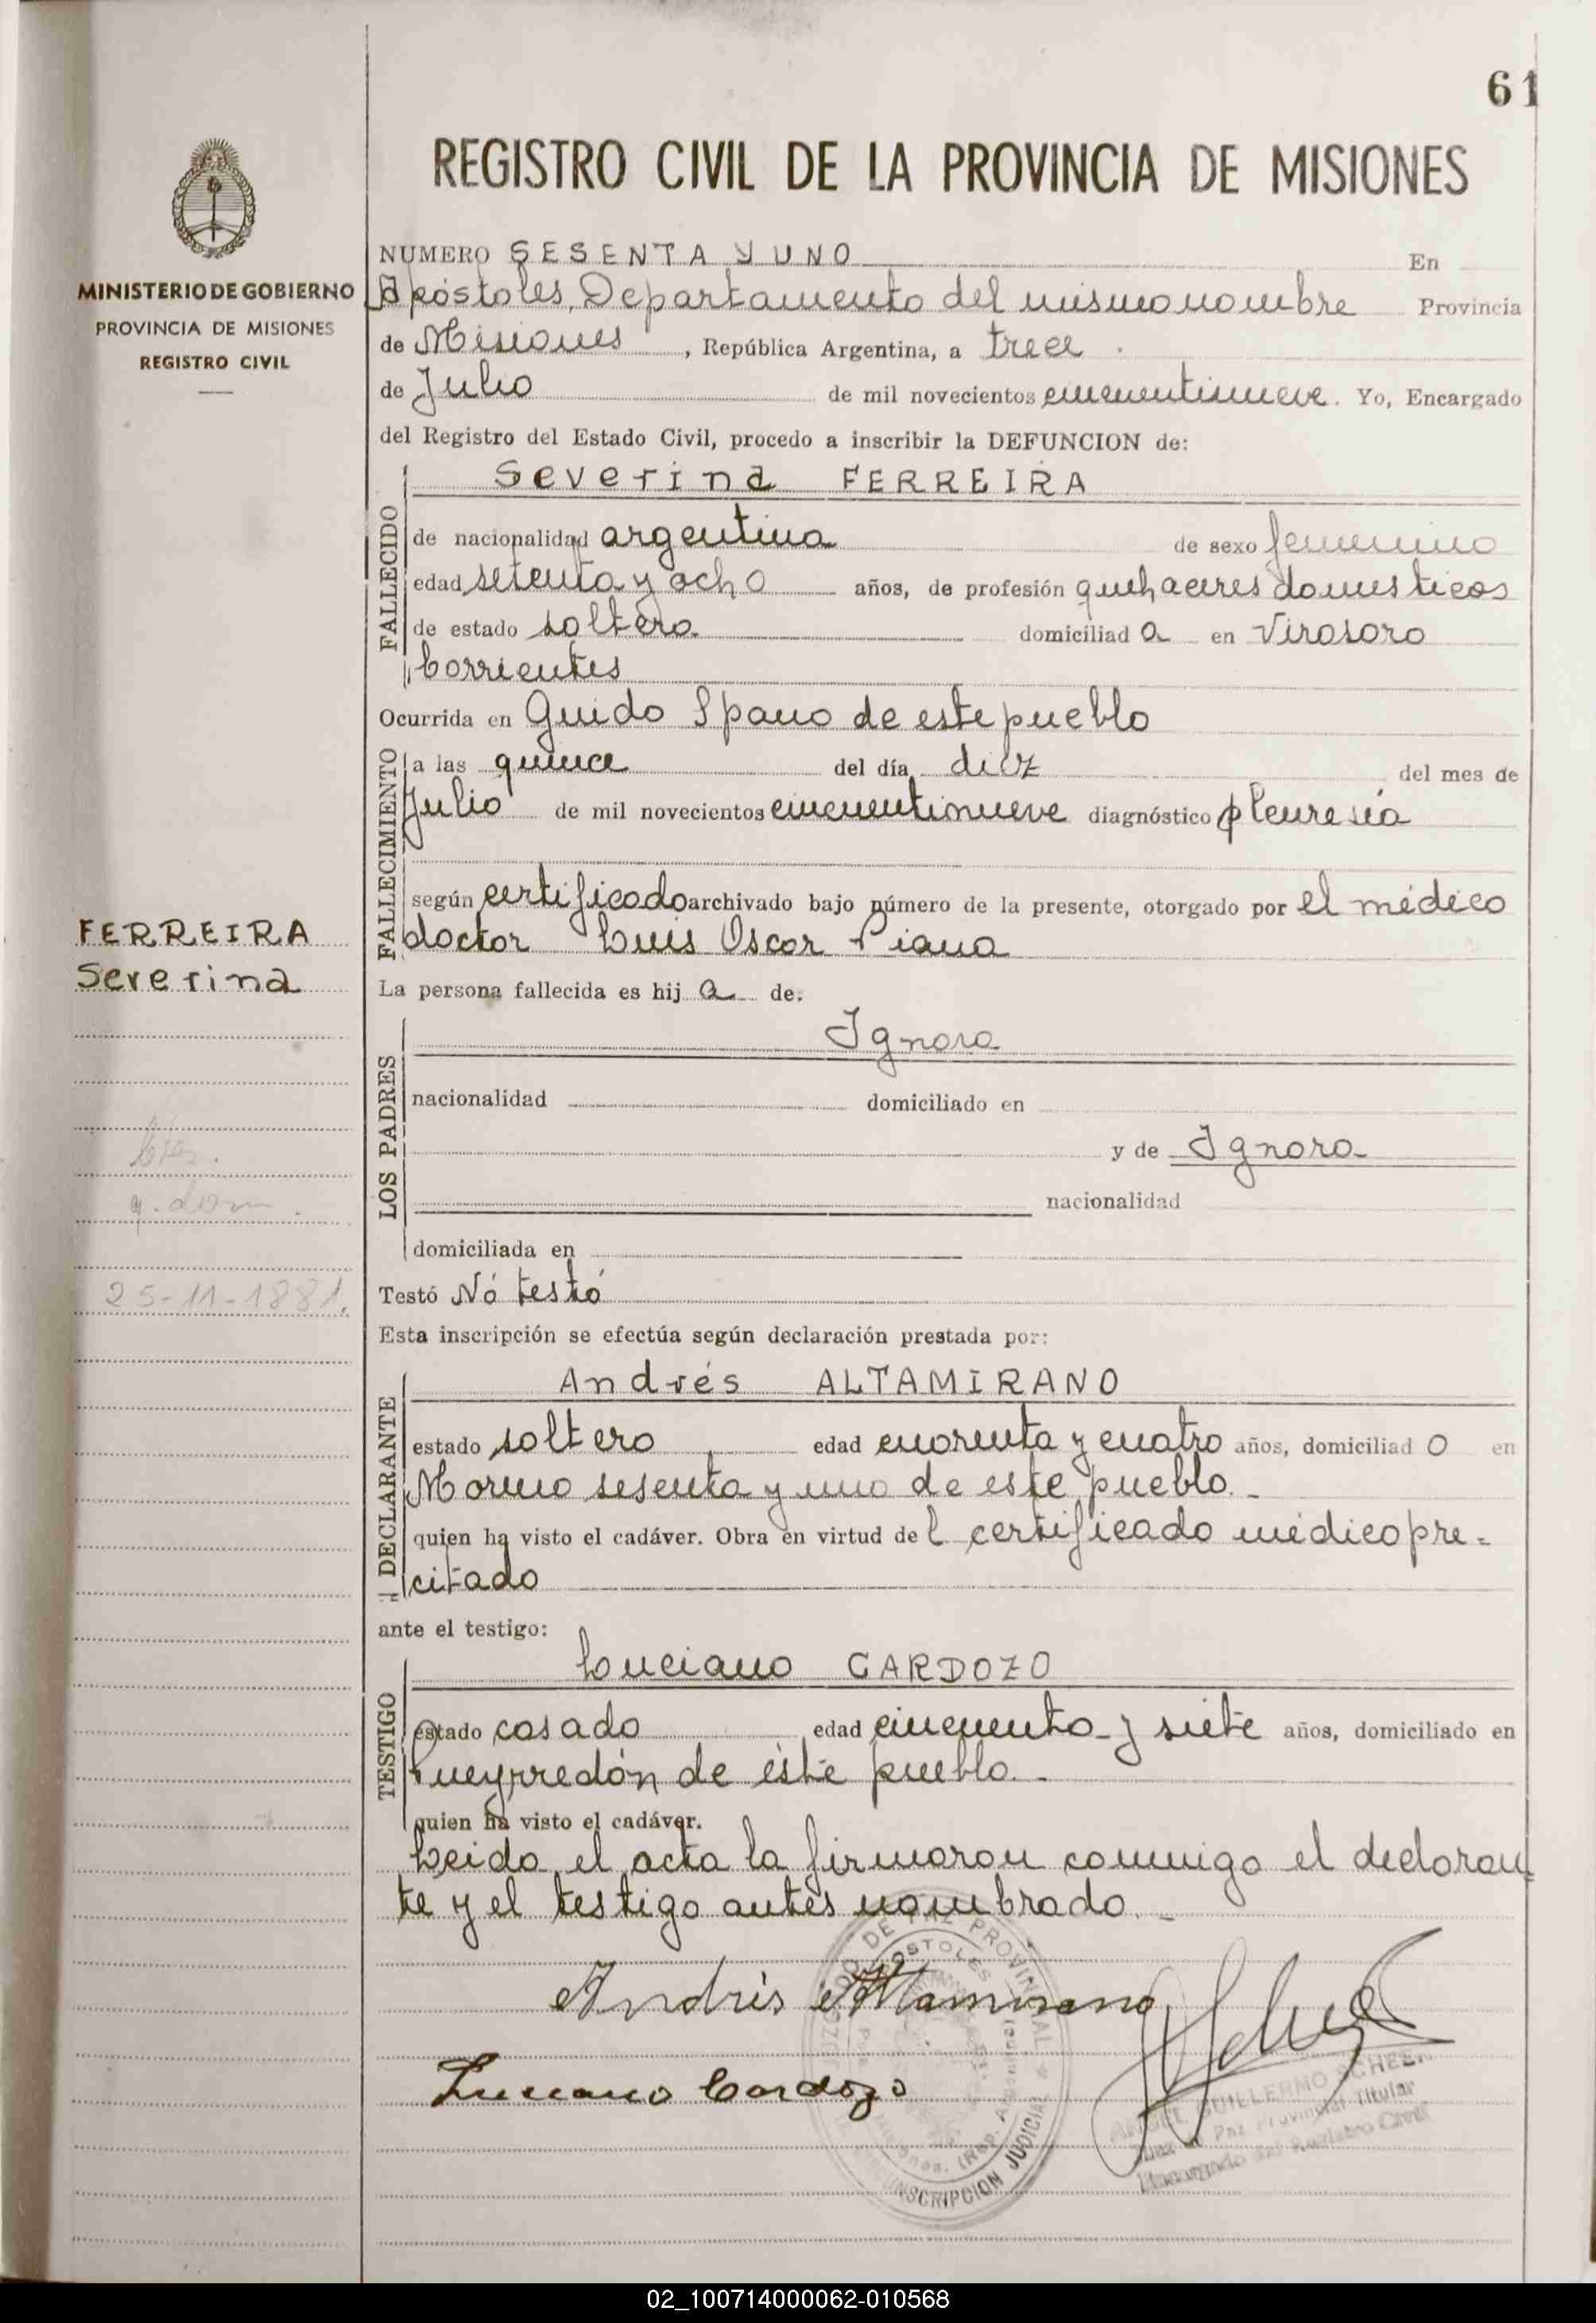 61
REGISTRO CIVIL DE LA PROVINCIA DE MISIONES
MINISTERIO DE GOBIERNO
PROVINCIA DE MISIONES
REGISTRO CIVIL
NUMERO SESENTA Y UNO En
Apóstoles, Departamento del mismo nombre Provincia
de Misiones, República Argentina, a trece
de Julio de mil novecientos cincuentinueve. Yo, Encargado
del Registro del Estado Civil, procedo a inscribir la DEFUNCION de:
FALLECIDO
Severina FERREIRA
de nacionalidad argentina de sexo femenino
edad setenta y ocho años, de profesión quehaceres domesticos
de estado soltera domiciliada en Virasoro
Corrientes
Ocurrida en Guido Spano de este pueblo
FALLECIMIENTO
a las quince del día diez del mes de
Julio de mil novecientos cincuentinueve diagnóstico pleuresía
según certificado archivado bajo número de la presente, otorgado por el médico
doctor Luis Oscar Piana
FERREIRA
Severina
La persona fallecida es hija de:
LOS PADRES
Ignora
nacionalidad domiciliado en
y de Ignora
nacionalidad
domiciliada en
q. dom.
25-11-1881.
Testó Nó testó
Esta inscripción se efectúa según declaración prestada por:
DECLARANTE
Andrés ALTAMIRANO
estado soltero edad cuarenta y cuatro años, domiciliado en
Moreno sesenta y uno de este pueblo.-
quien ha visto el cadáver. Obra en virtud del certificado médico pre-
citado
ante el testigo:
TESTIGO
Luciano CARDOZO
estado casado edad cincuenta y siete años, domiciliado en
Pueyrredón de éste pueblo.-
quien ha visto el cadáver.
Leida el acta la firmaron conmigo el declaran-
te y el testigo antes nombrado.-
Andrés Altamirano
Luciano Cardozo
JUZGADO DE PAZ PROVINCIAL
APOSTOLES
CIRCUNSCRIPCION JUDICIAL
GUILLERMO SCHEER
Juez de Paz Provincial Titular
Encargado del Registro Civil
02_100714000062-010568